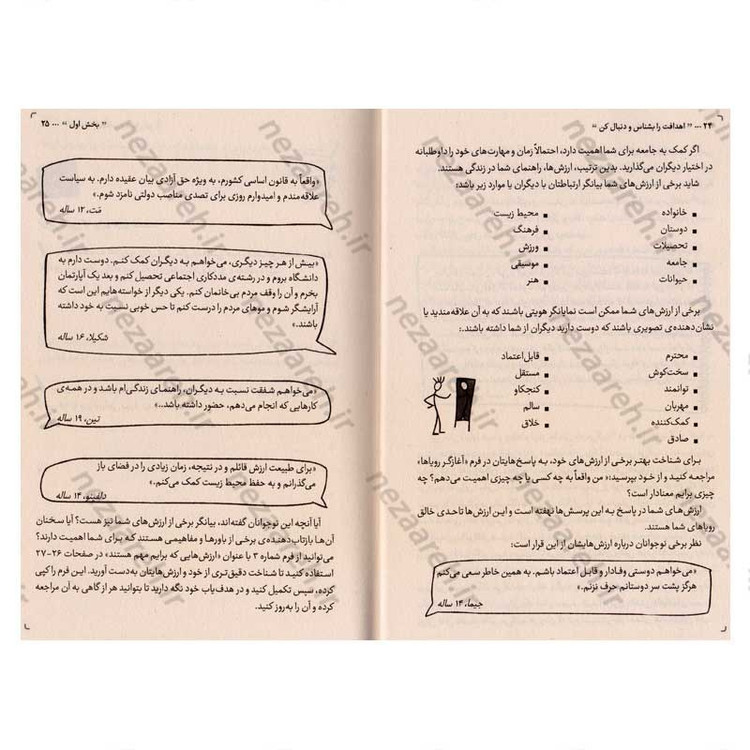 ۲۴ ... "اهدافت را بشناس و دنبال کن"
اگر کمک به جامعه برای شما اهمیت دارد، احتمالاً زمان و مهارت‌های خود را داوطلبانه
در اختیار دیگران می‌گذارید. بدین ترتیب، ارزش‌ها، راهنمای شما در زندگی هستند.
شاید برخی از ارزش‌های شما بیانگر ارتباطتان با دیگران یا موارد زیر باشد:
▪ خانواده
▪ دوستان
▪ تحصیلات
▪ جامعه
▪ حیوانات
▪ محیط زیست
▪ فرهنگ
▪ ورزش
▪ موسیقی
▪ هنر
برخی از ارزش‌های شما ممکن است نمایانگر هویتی باشند که به آن علاقه‌مندید یا
نشان‌دهنده‌ی تصویری باشند که دوست دارید دیگران از شما داشته باشند.:
▪ محترم
▪ سخت‌کوش
▪ توانمند
▪ مهربان
▪ کمک‌کننده
▪ صادق
▪ قابل‌اعتماد
▪ مستقل
▪ کنجکاو
▪ سالم
▪ خلاق
برای شناخت بهتر برخی از ارزش‌های خود، به پاسخ‌هایتان در فرم «آغازگر رویاها»
مراجعه کنید و از خود بپرسید:« من واقعاً به چه کسی یا چه چیزی اهمیت می‌دهم؟ چه
چیزی برایم معنادار است؟
ارزش‌های شما در پاسخ به این پرسش‌ها نهفته است و این ارزش‌ها تاحدی خالق
رویاهای شما هستند.
نظر برخی نوجوانان درباره ارزش‌هایشان از این قرار است:
«می‌خواهم دوستی وفادار و قابل اعتماد باشم. به همین خاطر سعی می‌کنم
هرگز پشت سر دوستانم حرف نزنم.»
جیما، ۱۴ ساله
"بخش اول" ... ۲۵
«واقعاً به قانون اساسی کشورم، به ویژه حق آزادی بیان عقیده دارم. به سیاست
علاقه‌مندم و امیدوارم روزی برای تصدی مناصب دولتی نامزد شوم.»
مَت، ۱۲ ساله
«بیش از هر چیز دیگری، می‌خواهم به دیگران کمک کنم. دوست دارم به
دانشگاه بروم و در رشته‌ی مددکاری اجتماعی تحصیل کنم و بعد یک آپارتمان
بخرم و آن را وقف مردم بی‌خانمان کنم. یکی دیگر از خواسته‌هایم این است که
آرایشگر شوم و موهای مردم را درست کنم تا حس خوبی نسبت به خود داشته
باشند.»
شکیلا، ۱۶ ساله
«می‌خواهم شفقت نسبت به دیگران، راهنمای زندگی‌ام باشد و در همه‌ی
کارهایی که انجام می‌دهم، حضور داشته باشد..»
تین، ۱۹ ساله
«برای طبیعت ارزش قائلم و در نتیجه، زمان زیادی را در فضای باز
می‌گذرانم و به حفظ محیط زیست کمک می‌کنم.»
دلفینو، ۱۳ ساله
آیا آنچه این نوجوانان گفته‌اند، بیانگر برخی از ارزش‌های شما نیز هست؟ آیا سخنان
آن‌ها بازتاب‌دهنده‌ی برخی از باورها و مفاهیمی هستند که برای شما اهمیت دارند؟
می‌توانید از فرم شماره ۳ با عنوان «ارزش‌هایی که برایم مهم هستند» در صفحات ۲۶-۲۷
استفاده کنید تا شناخت دقیق‌تری از خود و ارزش‌هایتان به‌دست آورید. این فرم را کپی
کرده، سپس تکمیل کنید و در هدف‌یاب خود نگه دارید تا بتوانید هر از گاهی به آن مراجعه
کرده و آن را به‌روز کنید.
nezaareh.ir